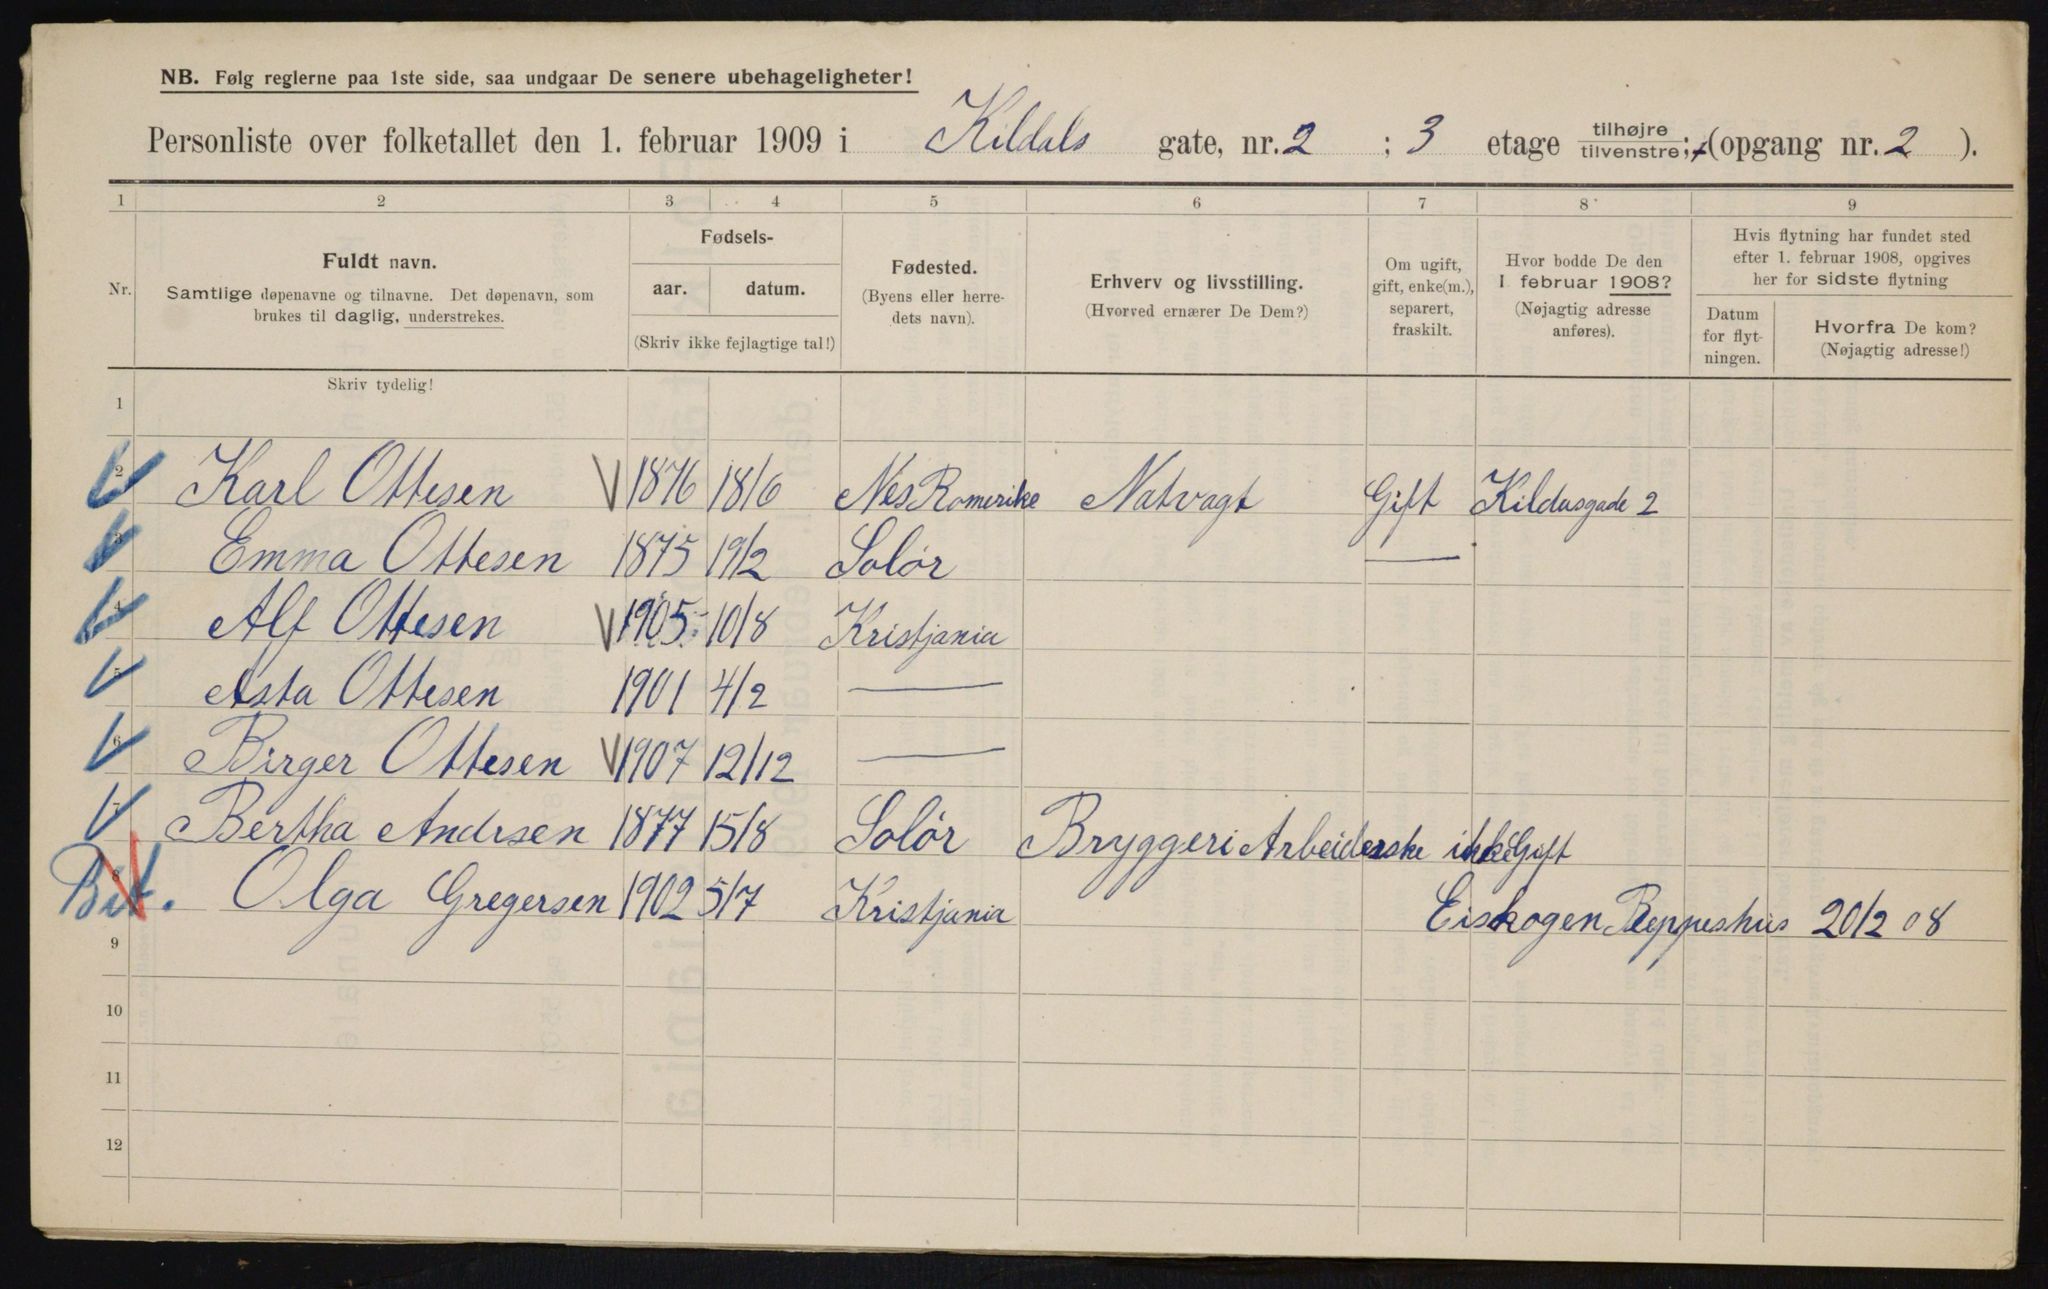 NB. Følg reglerne paa 1ste side, saa undgaar De senere ubehageligheter!
Personliste over folketallet den 1. februar 1909 i Kildals gate, nr. 2 ; 3 etage tilhøjre tilvenstre; (opgang nr. 2 ).
1 2 3 4 5 6 7 8 9
Nr.
Fuldt navn.
Samtlige døpenavne og tilnavne. Det døpenavn, som
brukes til daglig, understrekes.
Fødsels-
aar. datum.
(Skriv ikke fejlagtige tal!)
Fødested.
(Byens eller herre-
dets navn).
Erhverv og livsstilling.
(Hvorved ernærer De Dem?)
Om ugift,
gift, enke(m.),
separert,
fraskilt.
Hvor bodde De den
1 februar 1908?
(Nøjagtig adresse
anføres).
Hvis flytning har fundet sted
efter 1. februar 1908, opgives
her for sidste flytning
Datum
for flyt-
ningen.
Hvorfra De kom?
(Nøjagtig adresse!)
Skriv tydelig!
1
2 Karl Ottesen 1876 18/6 Nes Romerike Natvagt Gift Kildasgade 2
3 Emma Ottesen 1875 19/2 Solør —
4 Alf Ottesen 1905 10/8 Kristjania
5 Asta Ottesen 1901 4/2 —
6 Birger Ottesen 1907 12/12 —
7 Bertha Andrsen 1877 15/8 Solør Bryggeri Arbeiderske ikke Gift
8 Olga Gregersen 1902 5/7 Kristjania Eiskogen Beppeshus 20/2 08
9
10
11
12